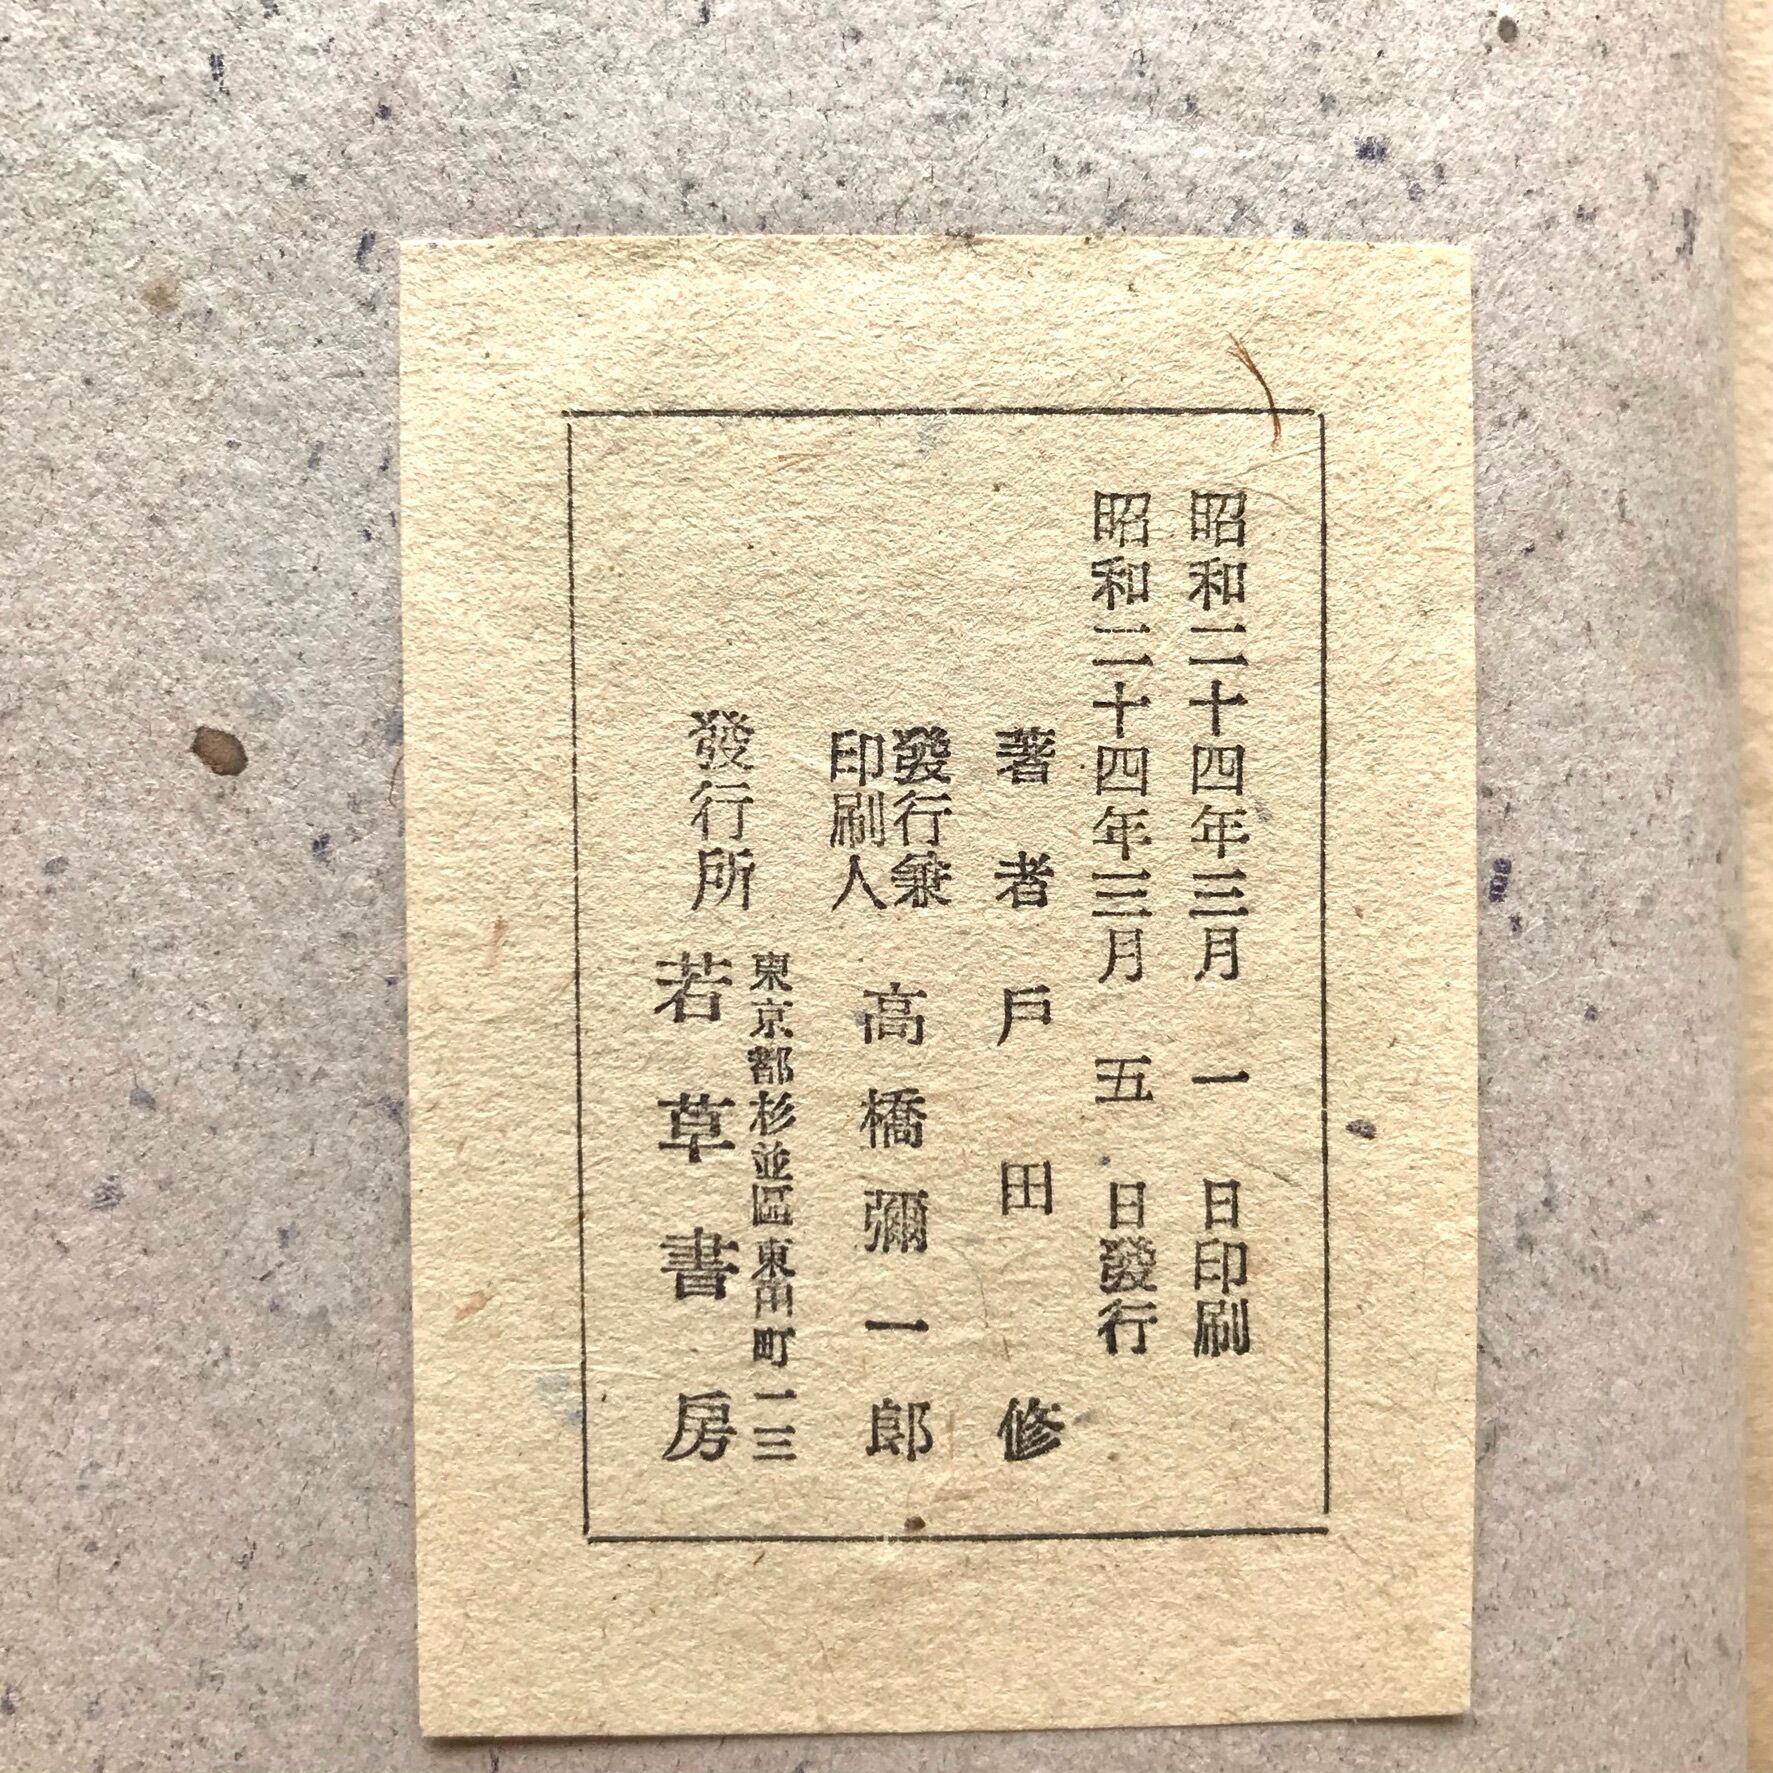 昭和二十四年三月 一 日印刷
昭和二十四年三月 五 日發行
著者 戸田修
發行兼
印刷人 高橋彌一郎
東京都杉並區東田町一三
發行所 若草書房